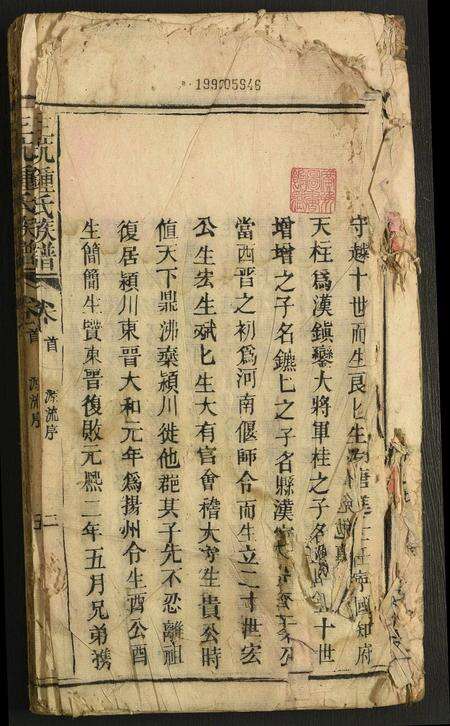 199705946
守越十世而生良匕生
天柱爲漢鎮蠻大將軍桂之子名 十世
增增之子名鑣匕之子名縣漢
當西晋之初爲河南偃師令而生立二十世宏
公生宏生斌匕生大有官會稽大守生貴公時
值天下鼎沸棄頴川徙他郡其子先不忍離祖
復居頴川東晋大和元年爲揚州令生酉公酉
生簡簡生賢東晋復敗元熙二年五月兄弟携
鍾氏族譜
卷首
源流序
二